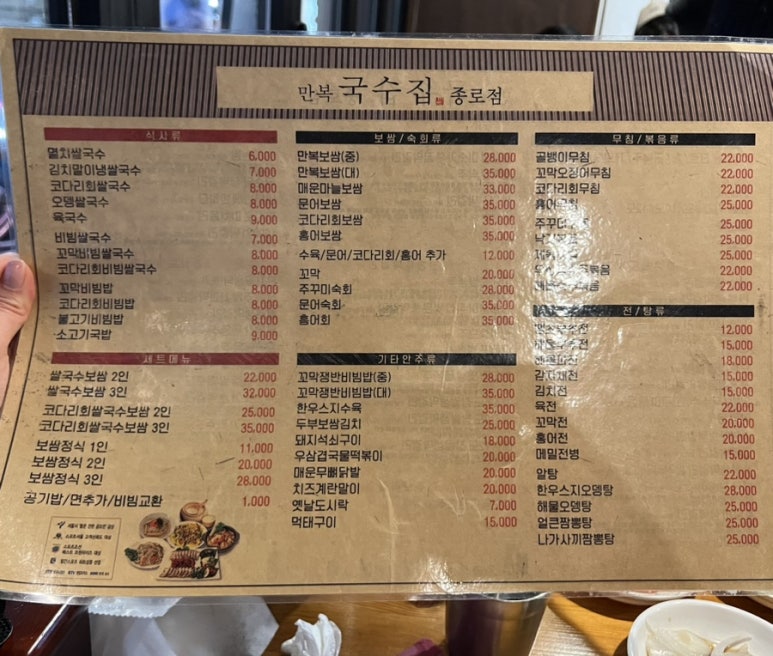 만복 국수집 종로점
식사류
멸치쌀국수 6.000
김치말이냉쌀국수 7.000
코다리회쌀국수 8.000
오뎅쌀국수 8.000
육국수 9.000
비빔쌀국수 7.000
꼬막비빔쌀국수 8.000
코다리회비빔쌀국수 8.000
꼬막비빔밥 8.000
코다리회비빔밥 8.000
불고기비빔밥 8.000
소고기국밥 9.000
세트메뉴
쌀국수보쌈 2인 22.000
쌀국수보쌈 3인 32.000
코다리회쌀국수보쌈 2인 25.000
코다리회쌀국수보쌈 3인 35.000
보쌈정식 1인 11.000
보쌈정식 2인 20.000
보쌈정식 3인 28.000
공기밥/면추가/비빔교환 1.000
보쌈/숙회류
만복보쌈(중) 28.000
만복보쌈(대) 35.000
매운마늘보쌈 33.000
문어보쌈 35.000
코다리회보쌈 35.000
홍어보쌈 35.000
수육/문어/코다리회/홍어 추가 12.000
꼬막 20.000
주꾸미숙회 28.000
문어숙회 35.000
홍어회 35.000
기타안주류
꼬막쟁반비빔밥(중) 28.000
꼬막쟁반비빔밥(대) 35.000
한우스지수육 35.000
두부보쌈김치 25.000
돼지석쇠구이 18.000
우삼겹국물떡볶이 20.000
매운무뼈닭발 20.000
치즈계란말이 20.000
옛날도시락 7.000
먹태구이 15.000
무침/볶음류
골뱅이무침 22.000
꼬막오징어무침 22.000
코다리회무침 22.000
홍어무침 25.000
25.000
25.000
25.000
22.000
22.000
전/탕류
12.000
15.000
18.000
감자채전 15.000
김치전 15.000
육전 22.000
꼬막전 20.000
홍어전 20.000
메밀전병 15.000
알탕 22.000
한우스지오뎅탕 28.000
해물오뎅탕 25.000
얼큰짬뽕탕 25.000
나가사끼짬뽕탕 25.000